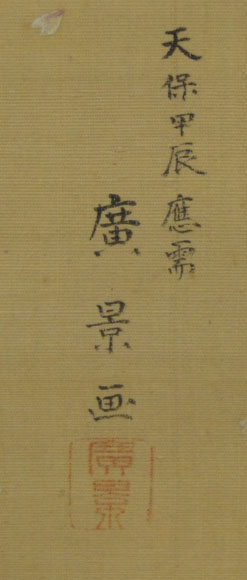 天保甲辰應需
廣景画
廣景